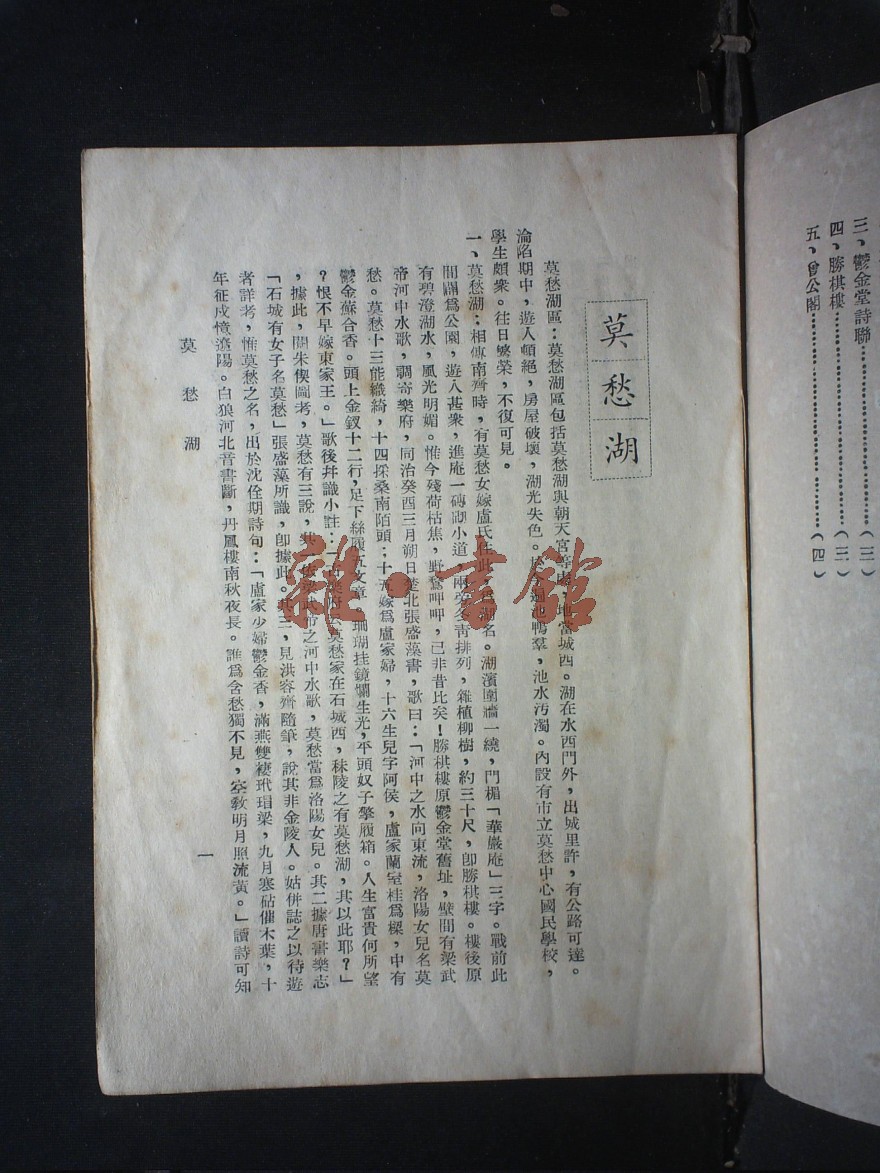 三、鬱金堂詩聯………………(三)
四、勝棋樓………………(三)
五、曾公閣………………(四)
莫愁湖
莫愁湖區：莫愁湖區包括莫愁湖與朝天宮等處，地當城西。湖在水西門外，出城里許，有公路可達。
淪陷期中，遊人頓絕，房屋破壞，湖光失色。鴨羣，池水汚濁。內設有市立莫愁中心國民學校，
學生頗衆。往日繁榮，不復可見。
一、莫愁湖：相傳南齊時，有莫愁女嫁盧氏住此湖名。湖濱圍牆一繞，門楣「華嚴庵」三字。戰前此
間闢爲公園，遊人甚衆，進庵一磚砌小道，兩旁冬靑排列，雜植柳樹，約三十尺，卽勝棋樓。樓後原
有碧澄湖水，風光明媚。惟今殘荷枯焦，野鶩呷呷，已非昔比矣！勝棋樓原鬱金堂舊址，壁間有梁武
帝河中水歌，調寄樂府，同治癸酉三月朔日楚北張盛藻書，歌曰：「河中之水向東流，洛陽女兒名莫
愁。莫愁十三能織綺，十四採桑南陌頭；十五嫁爲盧家婦，十六生兒字阿侯，盧家蘭室桂爲樑，中有
鬱金蘇合香。頭上金釵十二行，足下絲履五文章。珊瑚挂鏡爛生光，平頭奴子擎履箱。人生富貴何所望
？恨不早嫁東家王。」歌後幷識小註：「古樂府云莫愁家在石城西，秣陵之有莫愁湖，其以此耶？」
，據此，閱朱偰圖考，莫愁有三說，其一依梁武帝之河中水歌，莫愁當爲洛陽女兒。其二據唐書樂志
「石城有女子名莫愁」張盛藻所識，卽據此。其三，見洪容齊隨筆，說其非金陵人。姑併誌之以待遊
者詳考，惟莫愁之名，出於沈佺期詩句：「盧家少婦鬱金香，滿燕雙棲玳瑁梁，九月寒砧催木葉，十
年征戍憶遼陽。白狼河北音書斷，丹鳳樓南秋夜長。誰爲含愁獨不見，空敎明月照流黃。」讀詩可知
莫愁湖
一
雜·書館